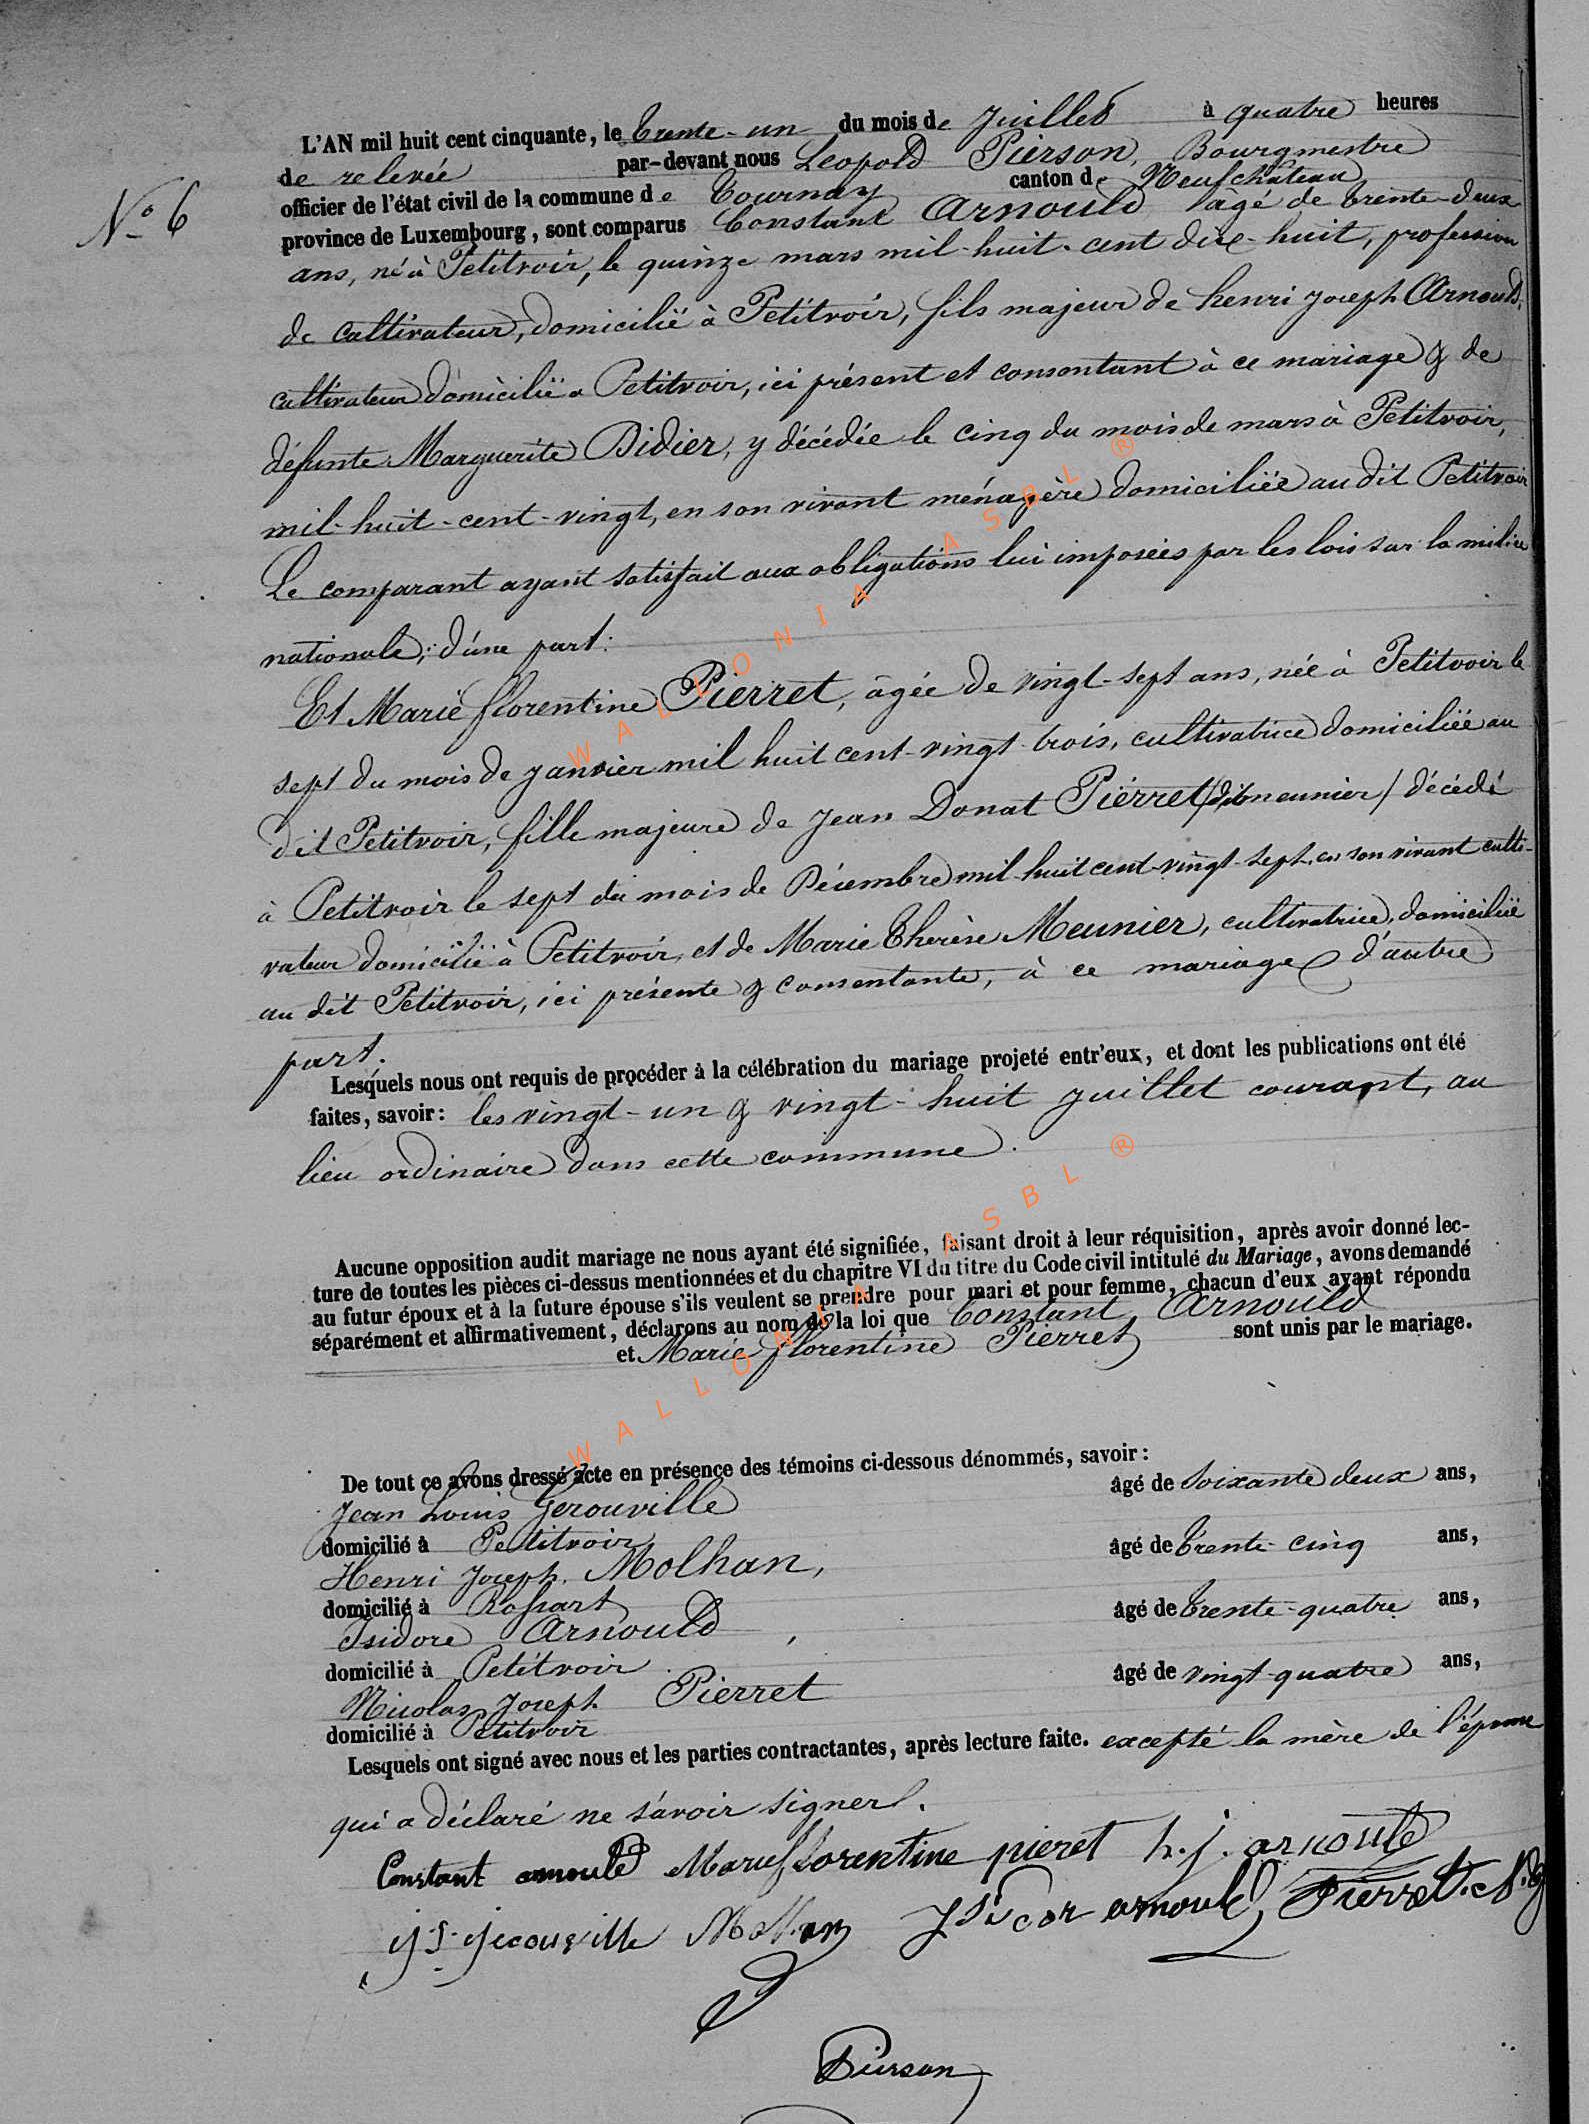 L'AN mil huit cent cinquante, le trente-un du mois de Juillet à quatre heures
de relevée par-devant nous Leopold Pierson, Bourgmestre
officier de l'état civil de la commune de Tournay canton de Neufchâteau
province de Luxembourg, sont comparus Constant Arnould âgé de trente-deux
N° 6
ans, né à Petitvoir, le quinze mars mil-huit-cent dix-huit, profession
de cultivateur, domicilié à Petitvoir, fils majeur de henri joseph Arnould,
cultivateur domicilié à Petitvoir, ici présent et consentant à ce mariage & de
défunte Marguerite Didier, y décédée le cinq du mois de mars à Petitvoir,
mil-huit-cent-vingt, en son vivant ménagère domiciliée au dit Petitvoir
Le comparant ayant satisfait aux obligations lui imposées par les lois sur la milice
nationale; d'une part:
Et Marie florentine Pierret, âgée de vingt-sept ans, née à Petitvoir le
sept du mois de janvier mil huit cent-vingt-trois, cultivatrice domiciliée au
dit Petitvoir, fille majeure de Jean Donat Pierret /dit meunier/ décédé
à Petitvoir le sept du mois de Décembre mil-huit cent-vingt-sept, en son vivant culti-
vateur domicilié à Petitvoir, et de Marie Thérèse Meunier, cultivatrice, domiciliée
au dit Petitvoir, ici présente & consentante, à ce mariage d'autre
part.
Lesquels nous ont requis de procéder à la célébration du mariage projeté entr'eux, et dont les publications ont été
faites, savoir: les vingt-un & vingt-huit juillet courant, au
lieu ordinaire dans cette commune.
Aucune opposition audit mariage ne nous ayant été signifiée, faisant droit à leur réquisition, après avoir donné lec-
ture de toutes les pièces ci-dessus mentionnées et du chapitre VI du titre du Code civil intitulé du Mariage, avons demandé
au futur époux et à la future épouse s'ils veulent se prendre pour mari et pour femme, chacun d'eux ayant répondu
séparément et affirmativement, déclarons au nom de la loi que Constant Arnould
et Marie florentine Pierret sont unis par le mariage.
De tout ce avons dressé acte en présence des témoins ci-dessous dénommés, savoir:
Jean Louis Gerouville âgé de Soixante deux ans,
domicilié à Petitvoir
Henri Joseph Molhan, âgé de trente-cinq ans,
domicilié à Rossart
Isidore Arnould, âgé de trente-quatre ans,
domicilié à Petitvoir
Nicolas Joseph Pierret âgé de vingt-quatre ans,
domicilié à Petitvoir
Lesquels ont signé avec nous et les parties contractantes, après lecture faite. excepté la mère de l'épouse
qui a déclaré ne savoir signer.
Constant arnould Marie florentine pieret h. j. arnould
j S. jerouville Molhan Jsidor arnould Pierret. N. J
Pierson
WALLONIA ASBL ®
WALLONIA ASBL ®